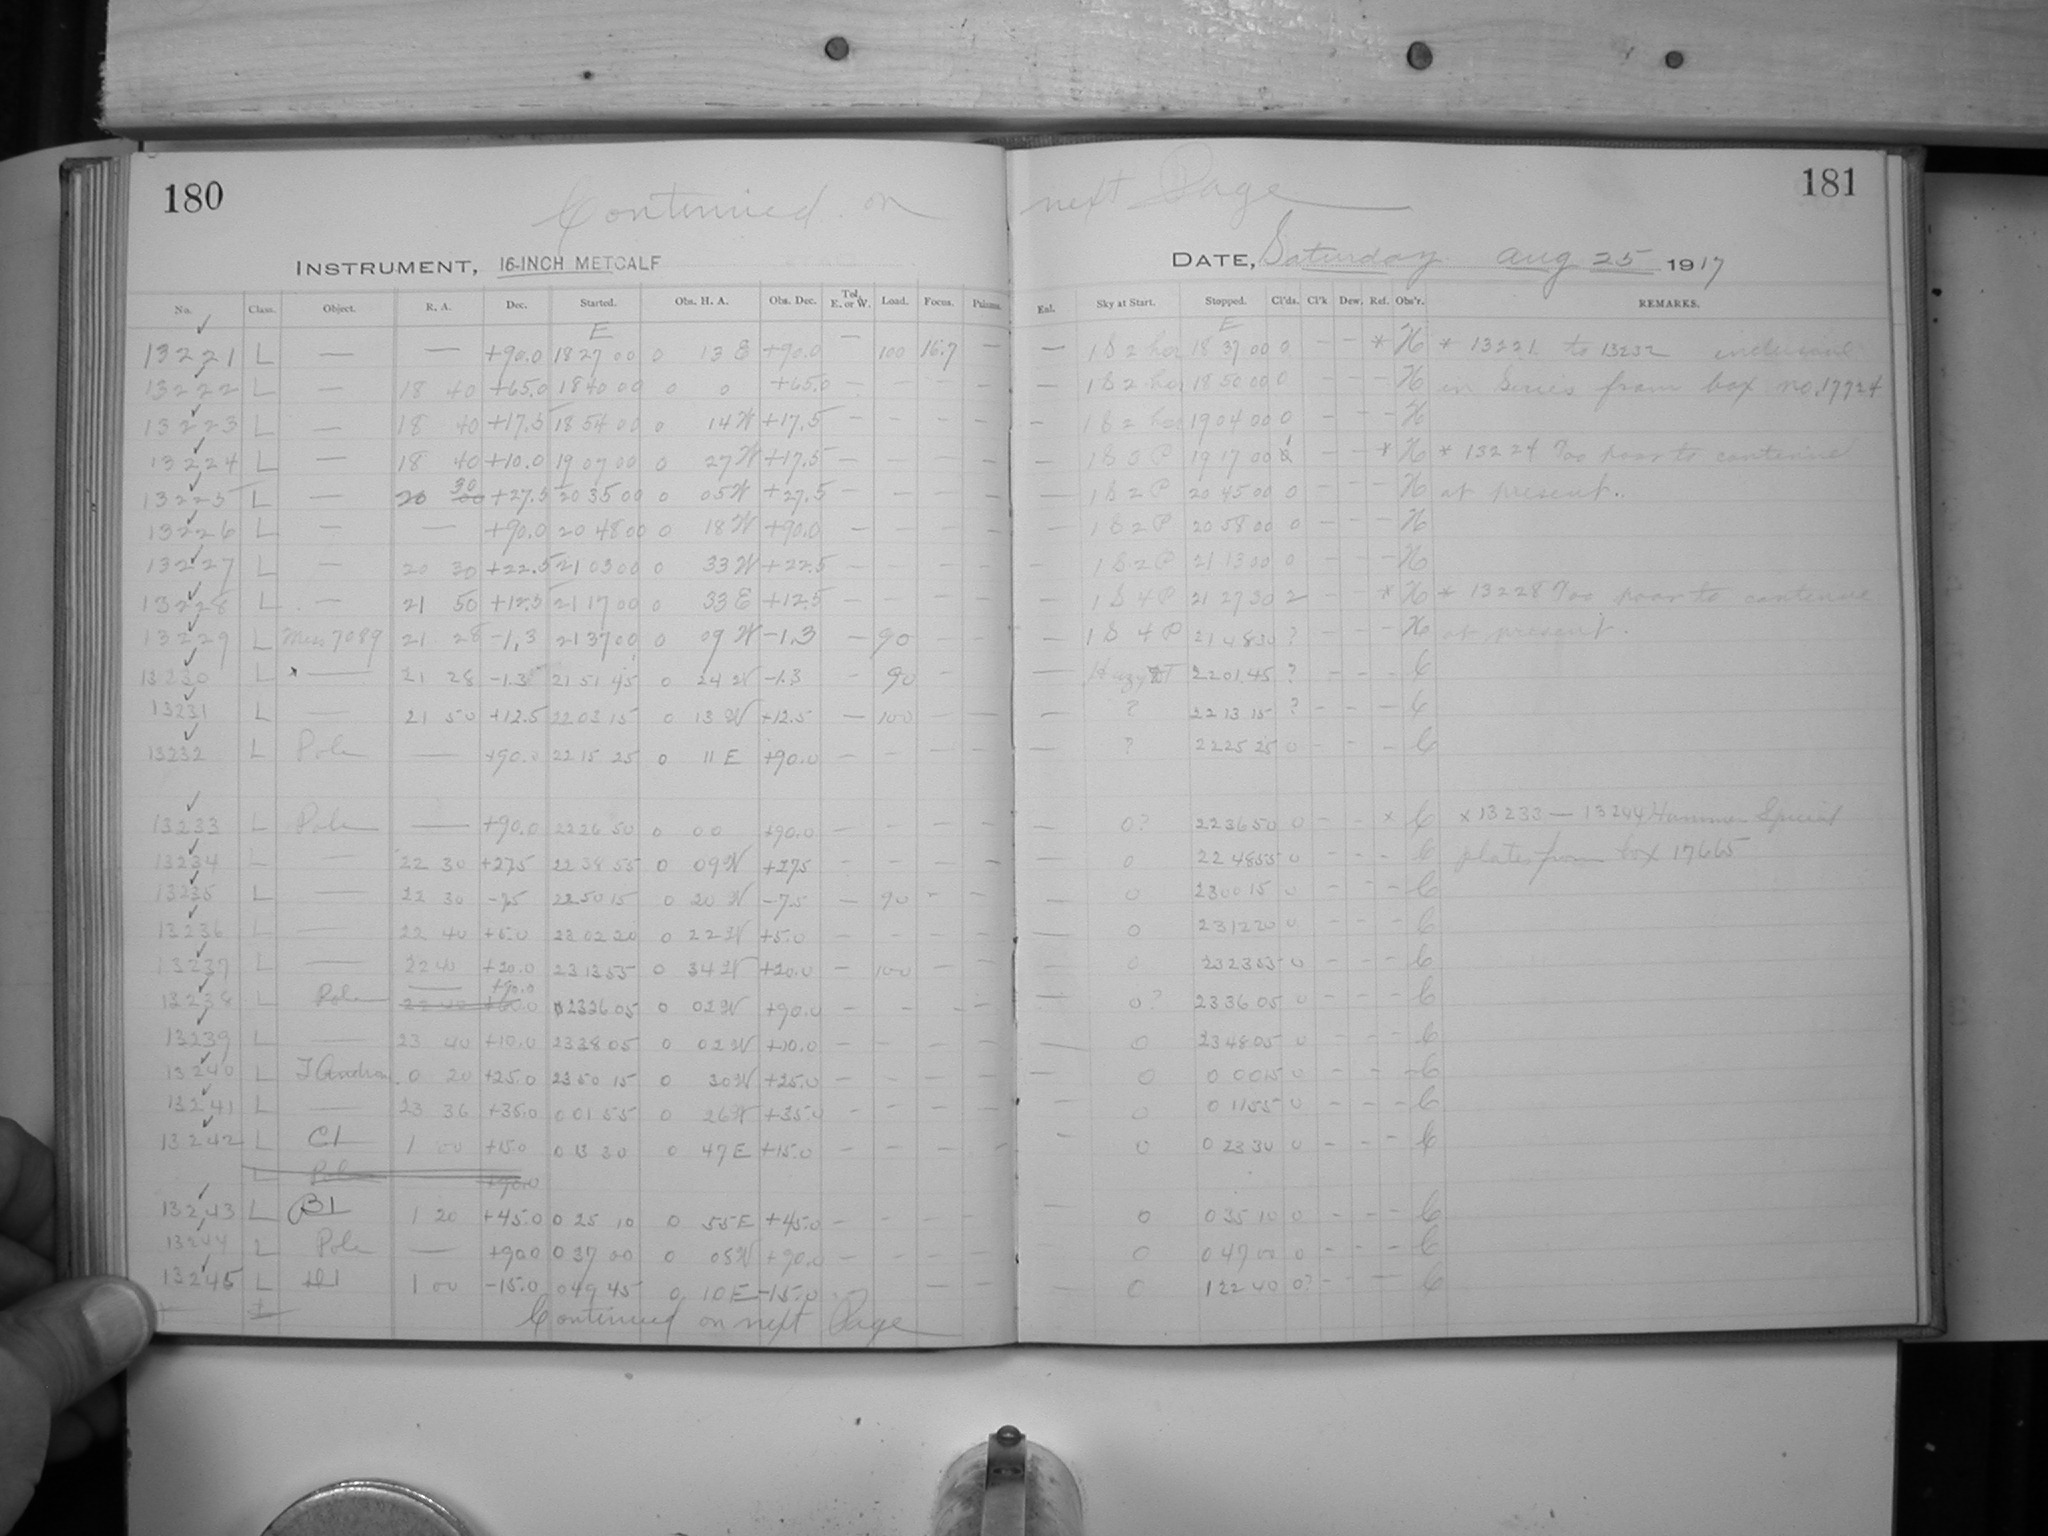 180
181
Continued on next Page
INSTRUMENT, 16-INCH METCALF
DATE, Saturday Aug 25 1917
No. Class. Object. R. A. Dec. Started. Obs. H. A. Obs. Dec. Tel. E. or W. Load. Focus. Enl. Sky at Start. Stopped. Cl'ds. Cl'k Dew. Ref. Obs'r. REMARKS.
E E
13221 L — — +90.0 18 27 00 0 13 E +90.0 — 100 16.7 — 1 S 2 18 37 00 0 — — * H * 13221 to 13232
13222 L — 18 40 +65.0 18 40 00 0 0 +65.0 — — — — 1 S 2 18 50 00 0 — — — H in Series from box no. 17724
13223 L — 18 40 +17.5 18 54 00 0 14 W +17.5 — — — — 1 S 2 19 04 00 0 — — — H
13224 L — 18 40 +10.0 19 07 00 0 27 W +17.5 — — — — 1 S 3 P 19 17 00 — — * H * 13224 Too poor to continue
13225 L — 20 30 +27.5 20 35 00 0 05 W +27.5 — — — — 1 S 2 P 20 45 00 0 — — — H at present.
13226 L — — +90.0 20 48 00 0 18 W +90.0 — — — — 1 S 2 P 20 58 00 0 — — — H
13227 L — 20 30 +22.5 21 03 00 0 33 W +22.5 — — — — 1 S 2 P 21 13 00 0 — — — H
13228 L — 21 50 +12.5 21 17 00 0 33 E +12.5 — — — — 1 S 4 P 21 27 30 2 — — * H * 13228 Too poor to continue
13229 L Mess 7089 21 28 -1.3 21 37 00 0 09 W -1.3 — 90 — 1 S 4 P 21 48 30 ? — — — H at present.
13230 L * — 21 28 -1.3 21 51 45 0 24 W -1.3 — 90 — — Hazy 22 01 45 ? — — — C
13231 L — 21 50 +12.5 22 03 15 0 13 W +12.5 — 100 — — ? 22 13 15 ? — — — C
13232 L Pole — +90.0 22 15 25 0 11 E +90.0 — — ? 22 25 25 0 — — — C
13233 L Pole — +90.0 22 26 50 0 00 +90.0 — — — — 0? 22 36 50 0 — — * C * 13233 — 13244 Hammer Special
13234 L — 22 30 +27.5 22 38 55 0 09 W +27.5 — — — — 0 22 48 55 0 — — — C plates from box 17665
13235 L — 22 30 -7.5 22 50 15 0 20 W -7.5 — 90 — — 0 23 00 15 0 — — — C
13236 L — 22 40 +5.0 23 02 20 0 22 W +5.0 — — — — 0 23 12 20 0 — — — C
13237 L — 22 40 +20.0 23 13 55 0 34 W +20.0 — 100 — — 0 23 23 55 0 — — — C
13238 L Pole — +90.0 23 26 05 0 02 W +90.0 — — — — 0? 23 36 05 0 — — — C
13239 L — 23 40 +10.0 23 38 05 0 02 W +10.0 — — — — 0 23 48 05 0 — — — C
13240 L T Androm. 0 20 +25.0 23 50 15 0 30 W +25.0 — — — — 0 0 00 15 0 — — — C
13241 L — 23 36 +35.0 0 01 55 0 26 W +35.0 — — — — 0 0 11 55 0 — — — C
13242 L C1 1 00 +15.0 0 13 30 0 47 E +15.0 — — — — 0 0 23 30 0 — — — C
L Pole +90.0
13243 L B1 1 20 +45.0 0 25 10 0 55 E +45.0 — — — — 0 0 35 10 0 — — — C
13244 L Pole — +90.0 0 37 00 0 05 W +90.0 — — — — 0 0 47 00 0 — — — C
13245 L 1 00 -15.0 0 49 45 0 10 E -15.0 — — — 0 1 22 40 0? — — — C
Continued on next Page